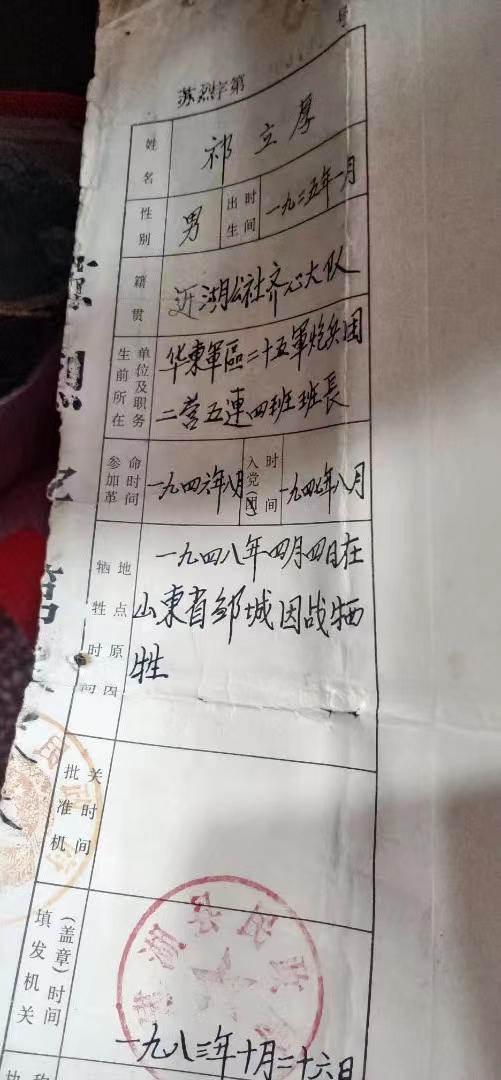 号
苏烈字第
姓名 祁立厚
性别 男 出生时间 一九二五年一月
籍贯 近湖公社齐心大队
生前所在单位及职务 华東軍區二十五軍炮兵团
二营五連四班班長
参加革命时间 一九四六年八月 入党(团)时间 一九四七年八月
牺牲时间地点原因 一九四八年四月四日在
山東省邹城因战牺
牲
批准机关时间
填发机关(盖章)时间
湖县
一九八三年十月二十六日